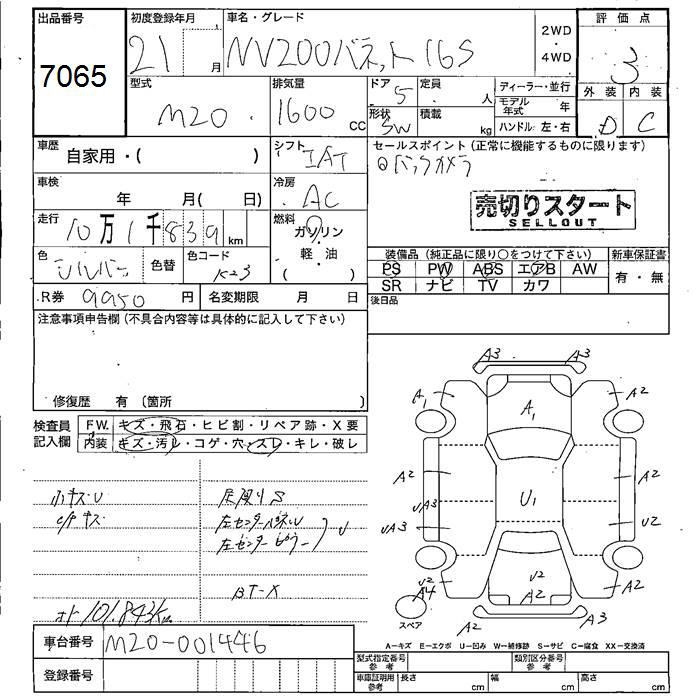 出品番号 7065
初度登録年月 21 月
車名・グレード NV200バネット 16S
2WD
4WD
評価点 3
型式 M20
排気量 1600 cc
ドア 5
定員 人
形状 SW
積載 kg
ディーラー・並行
モデル年式 年
ハンドル 左・右
外装 D
内装 C
車歴 自家用・( )
シフト IAT
セールスポイント (正常に機能するものに限ります)
◎バックカメラ
車検 年 月( 日)
冷房 AC
売切りスタート
SELLOUT
走行 10万1千839 km
燃料 ガソリン
軽・油
( )
色 シルバー
色替
色コード K23
装備品 (純正品に限り○をつけて下さい)
新車保証書
PS PW ABS エアB AW
有・無
SR ナビ TV カワ
R券 9950 円
名変期限 月 日
後日品
注意事項申告欄 (不具合内容等は具体的に記入して下さい)
修復歴 有 (箇所 )
検査員記入欄
FW. キズ・飛石・ヒビ割・リペア跡・X要
内装 キズ・汚レ・コゲ・穴・スレ・キレ・破レ
小キズ・U
左センターパネル U
左センターピラー U
βT-X
オト 101.843km
A3 A3
A1 A2
A1
A2 A2
U1
UA3
UA3 U2
U2 A4
U2
A2
A2 A3
スペア
A-キズ E-エクボ U-凹み W-補修跡 S-サビ C-腐食 XX-交換済
車台番号 M20-001446
登録番号
型式指定番号 参考
類別区分番号 参考
車庫証明用 参考 長さ cm 幅 cm 高さ cm